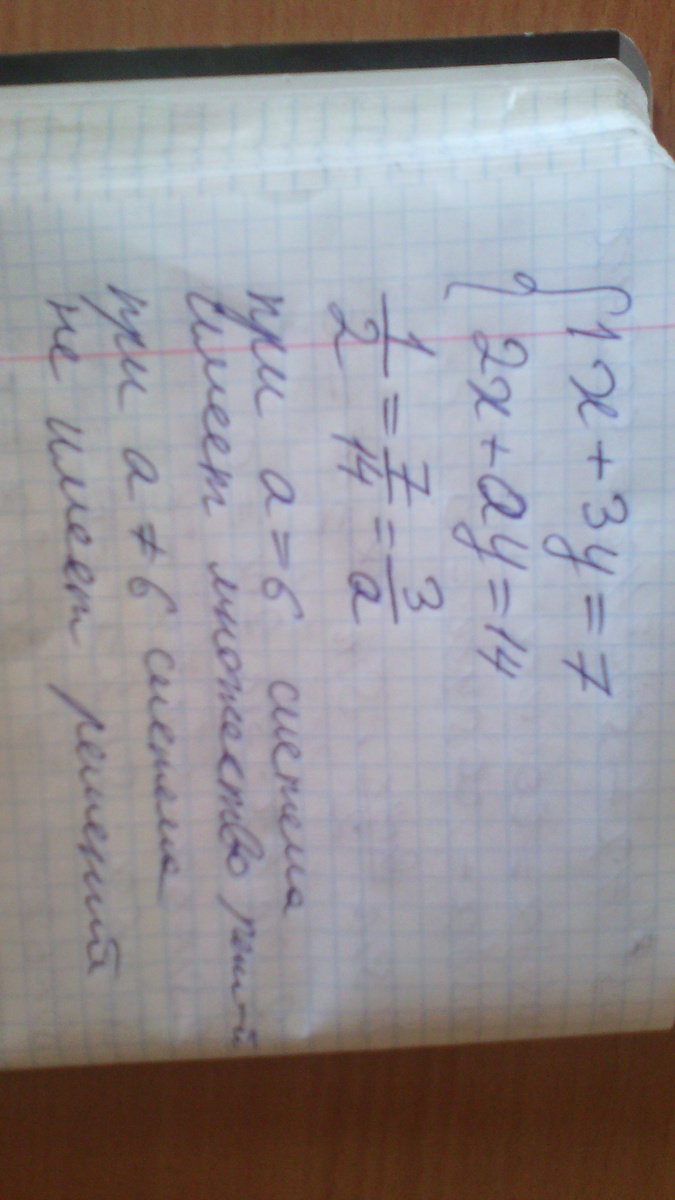 {1x + 3y = 7
2x + ay = 14
1/2 = 7/14 = 3/a
при a = 6 система
имеет множество реш-й
при a ≠ 6 система
не имеет решений